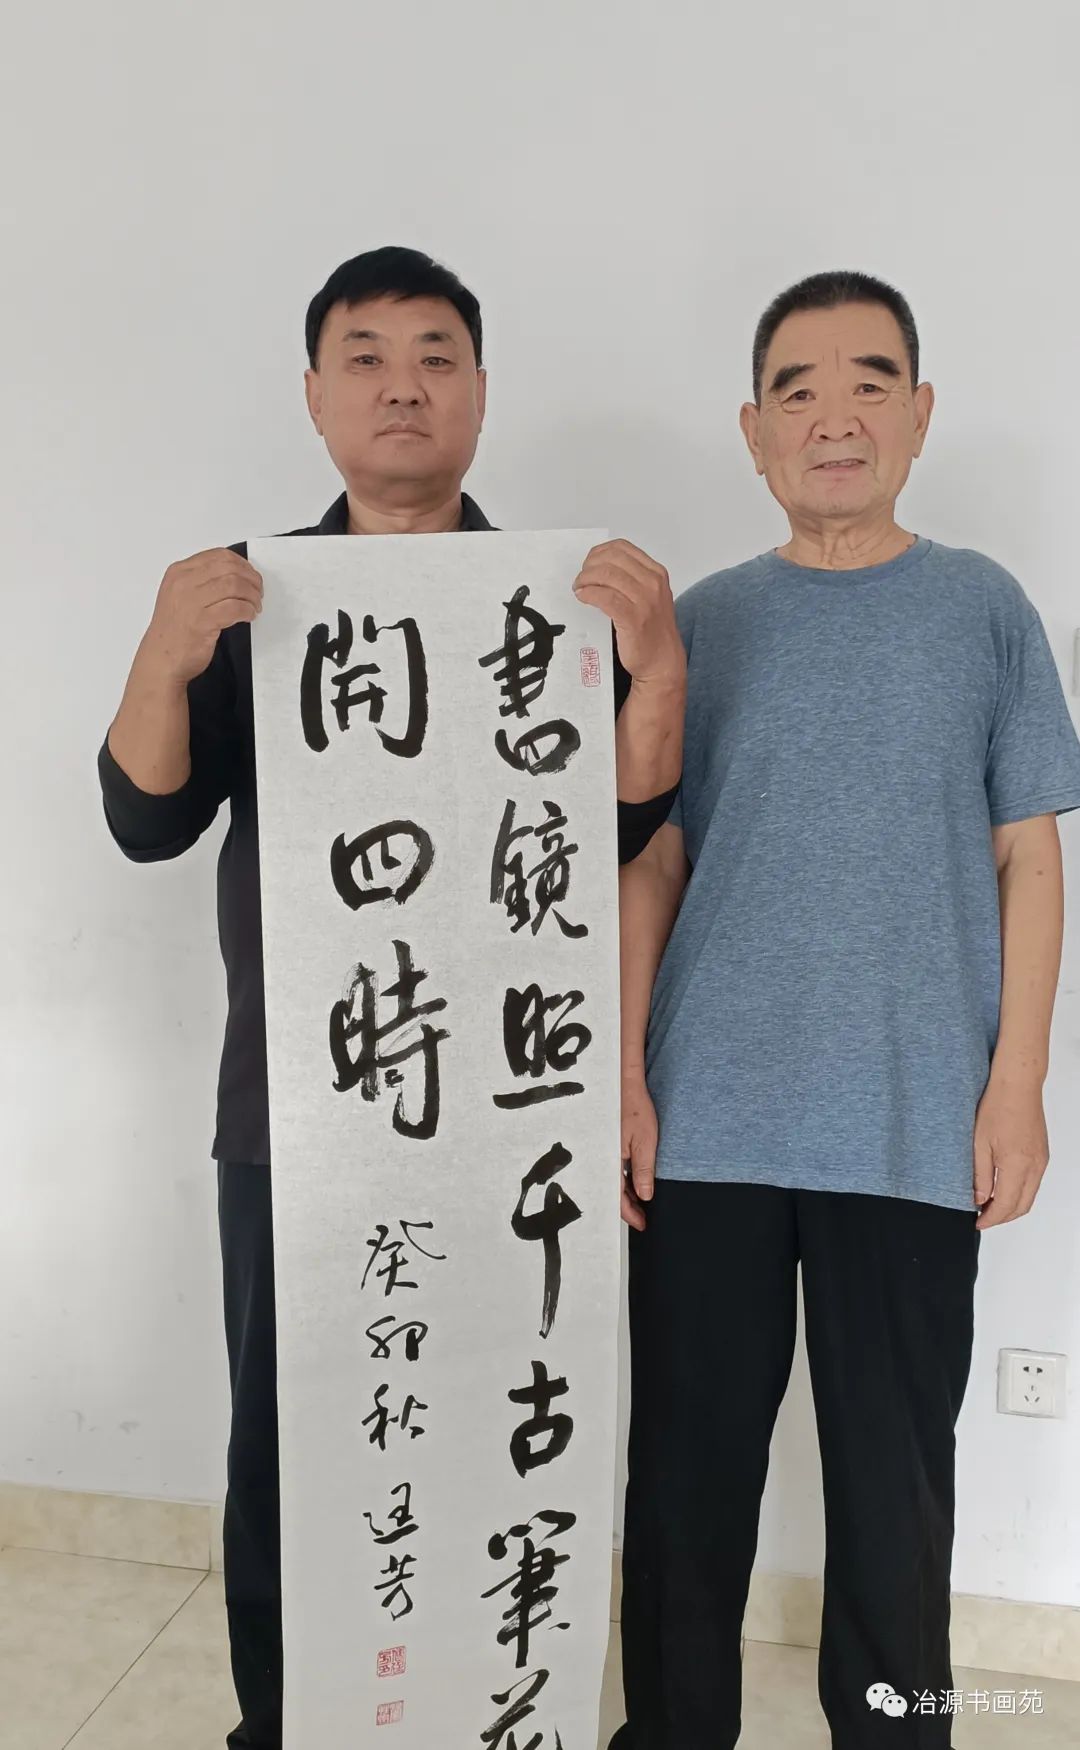 書鏡照千古筆花
開四時
癸卯秋
冶源书画苑